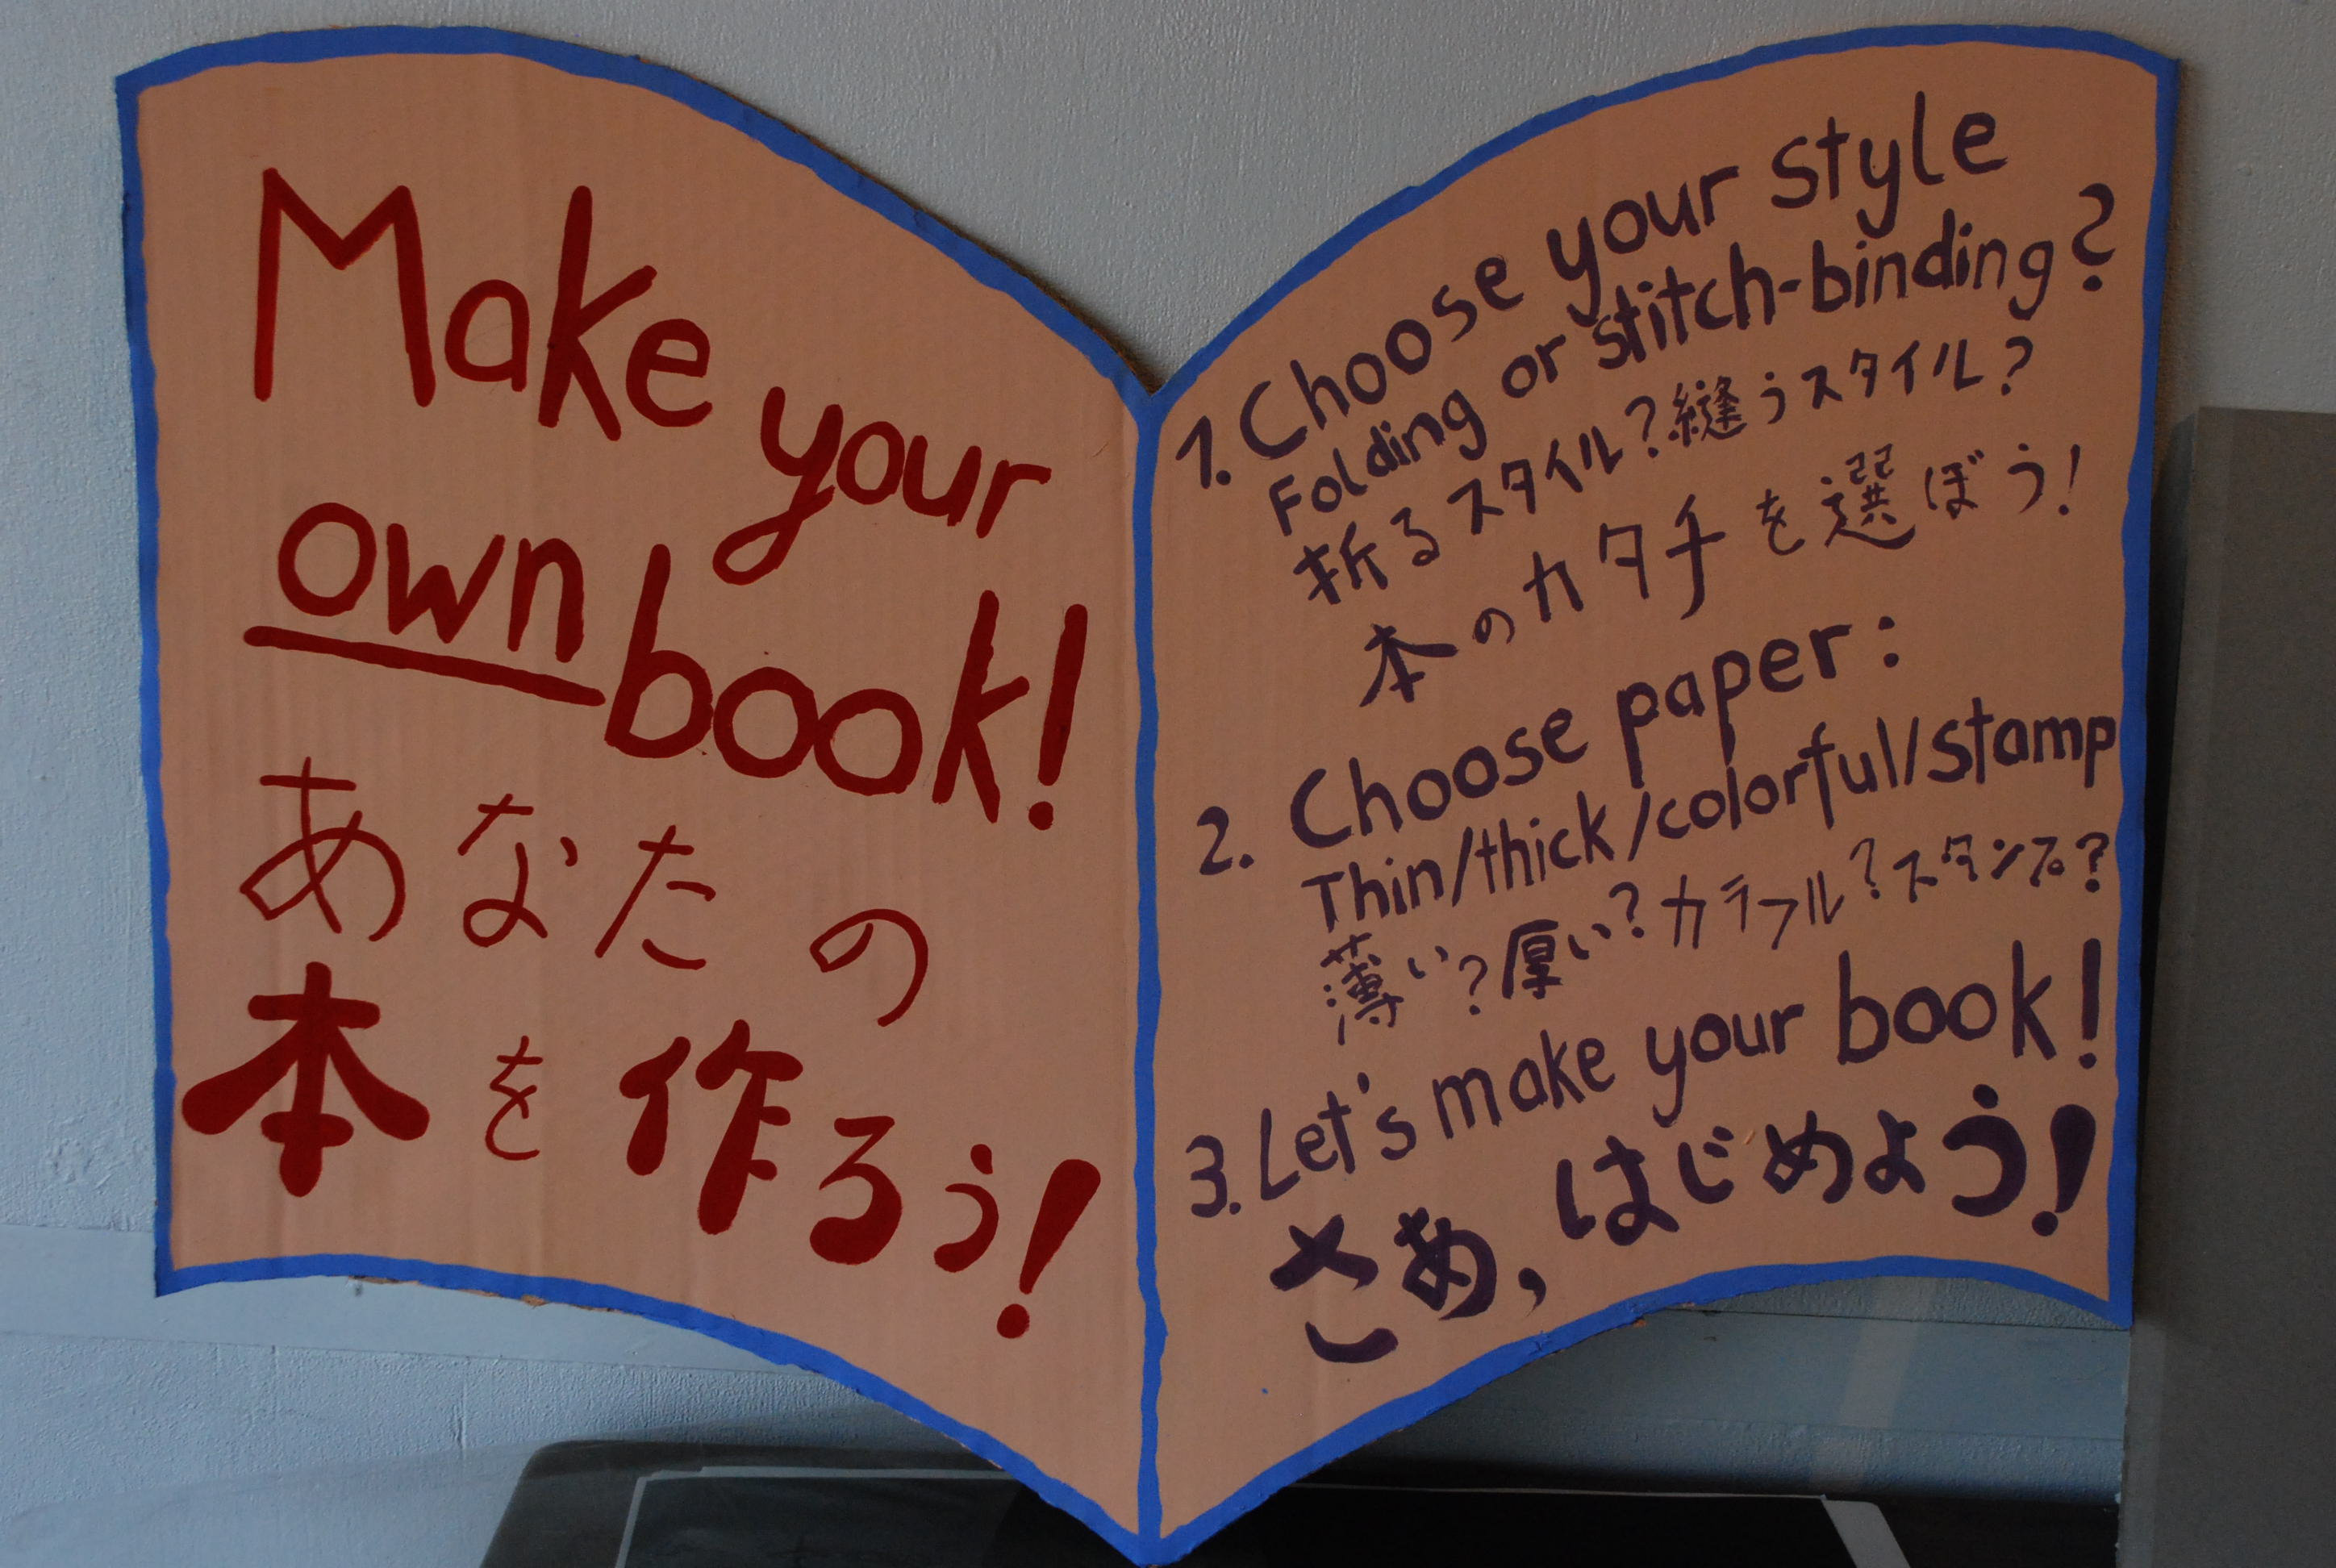 Make your
own book!
あなたの
本を作ろう!
1. Choose your style
Folding or stitch-binding?
折るスタイル?縫うスタイル?
本のカタチを選ぼう!
2. Choose paper:
Thin/thick/colorful/stamp
薄い?厚い?カラフル?スタンプ?
3. Let's make your book!
さあ,はじめよう!